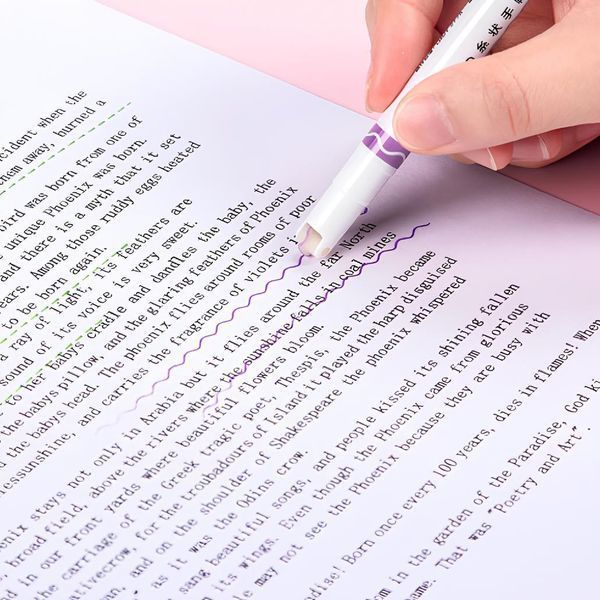 糸状手
ccident when the
them away, burned a
bird was born from one of
unique Phoenix was born.
and there is a myth that it set
ears. Among those ruddy eggs heated
to be born again.
a ray of light, its feathers are
sound of its voice is very sweet.
to her babys cradle and dandles the baby, the
the babys pillow, and the glaring feathers of Phoenix
d the babys head. The phoenix flies around rooms of poor
essunshine, and carries the fragrance of violets
enix stays not only in Arabia but it flies around the far North
broad field, above the rivers where the sunshine falls in coal mines
d in our front yards where beautiful flowers bloom.
the carriage of the Greek tragic poet, Thespis, the Phoenix became
ativecrow, for the troubadours of Island it played the harp disguised
an, and on the shoulder of Shakespeare the phoenix whispered
as it was the Odins crow.
sang beautiful songs, and people kissed its shining fallen
its wings. Even though the Phoenix came from glorious
e may not see the Phoenix because they are busy with
adise! Born once every 100 years, dies in flames! When
n in the garden of the Paradise, God ki
ame. That was "Poetry and Art".